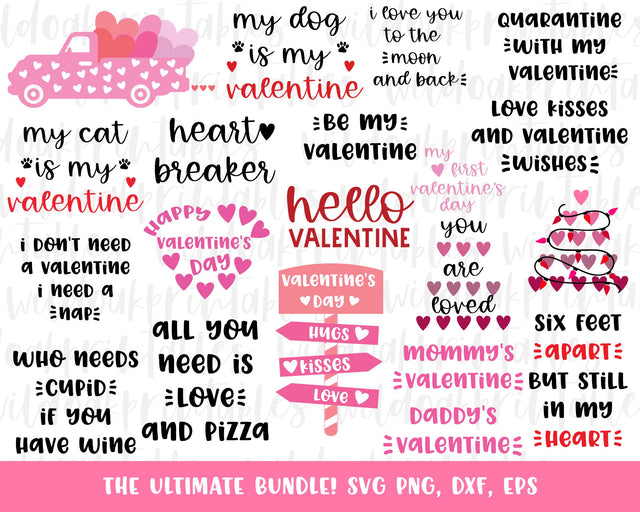 my dog
is my
valentine
i love you
to the
moon
and back
QUARANTINE
WITH MY
VALENTINE
my cat
is my
valentine
heart
breaker
BE MY
VALENTINE
LOVE KISSES
AND VALENTINE
WISHES
my
first
valentine's
day
HAPPY
VALENTINE'S
DAY
hello
VALENTINE
you
are
loved
I DON'T NEED
A VALENTINE
I NEED A
NAP
VALENTINE'S
DAY
HUGS
KISSES
LOVE
SIX FEET
APART
BUT STILL
IN MY
HEART
WHO NEEDS
CUPID
IF YOU
HAVE WINE
ALL YOU
NEED IS
LOVE
AND PIZZA
MOMMY'S
VALENTINE
DADDY'S
VALENTINE
THE ULTIMATE BUNDLE! SVG PNG, DXF, EPS
wildoakprintables